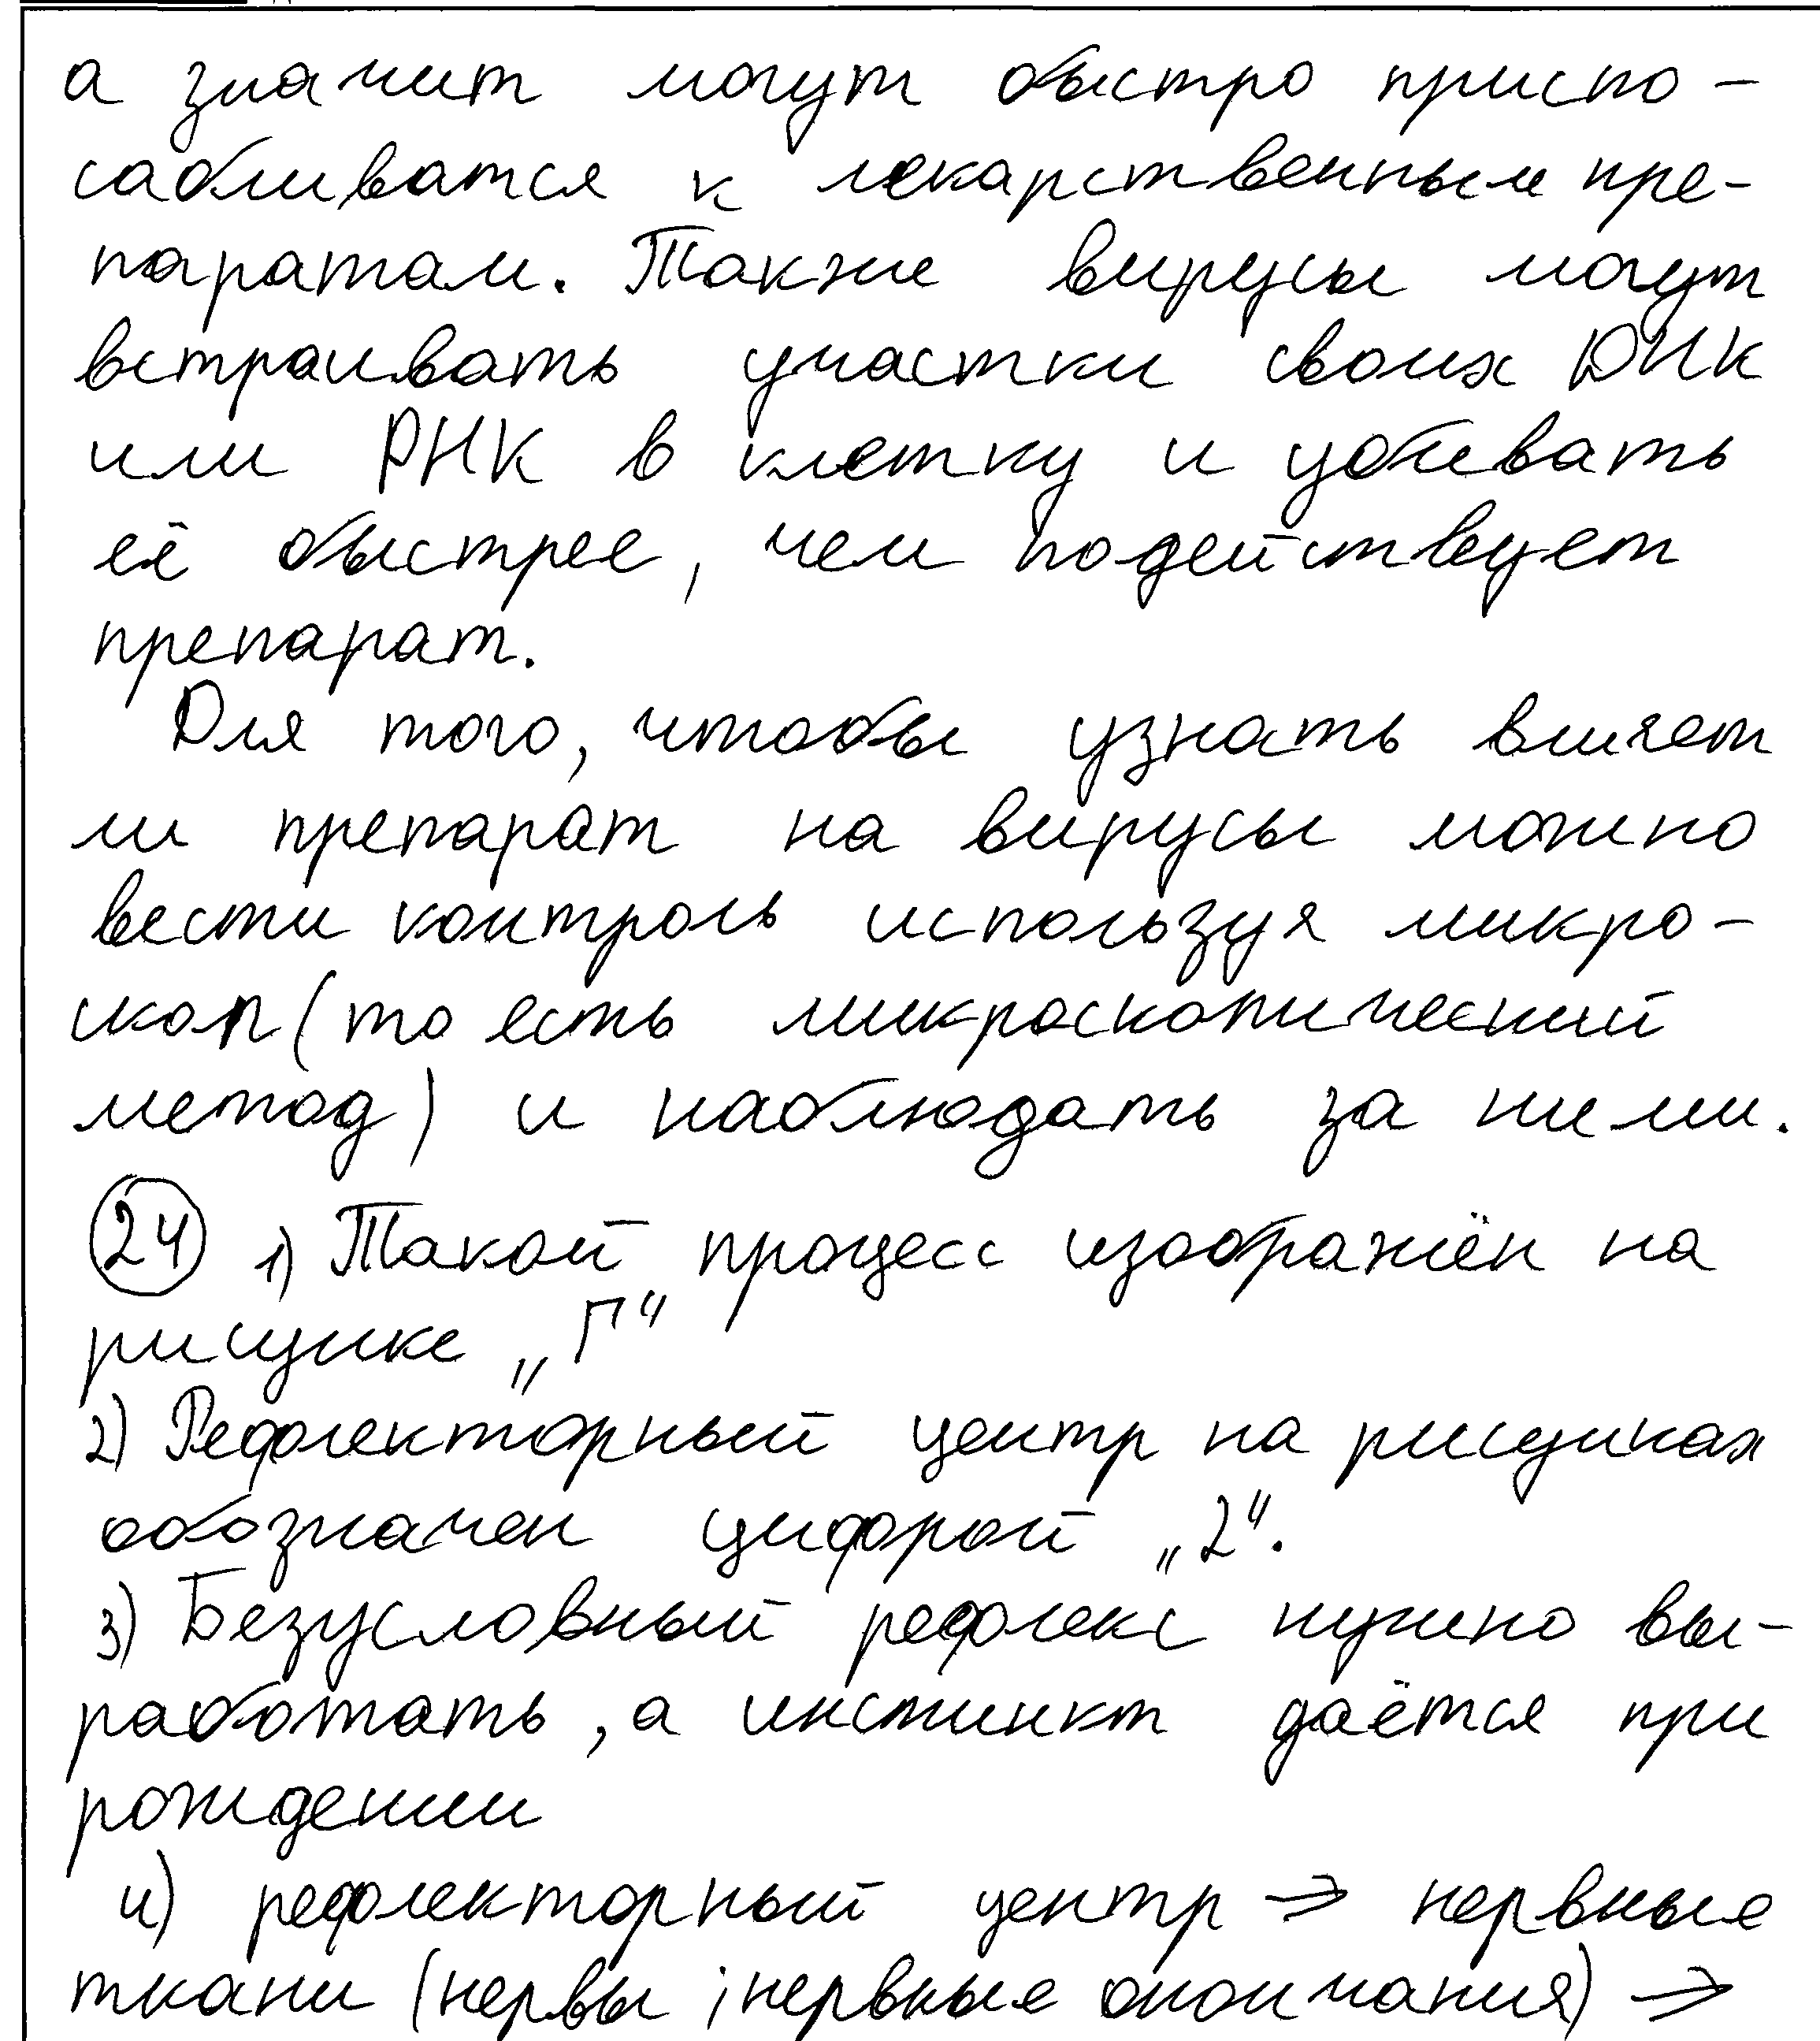 а значит могут быстро приспо-
сабливатся к лекарственным пре-
паратам. Также вирусы могут
встраивать участки своих ДНК
или РНК в клетку и убивать
её быстрее, чем подействует
препарат.
Для того, чтобы узнать влияет
ли препарат на вирусы можно
вести контроль используя микро-
скоп (то есть микроскопический
метод) и наблюдать за ними.
24 1) Такой процесс изображён на
рисунке „Г“
2) Рефлекторный центр на рисунках
обозначен цифрой „2“.
3) Безусловный рефлекс нужно вы-
работать, а инстинкт даётся при
рождении
4) рефлекторный центр → нервные
ткани (нервы; нервные окончания) →